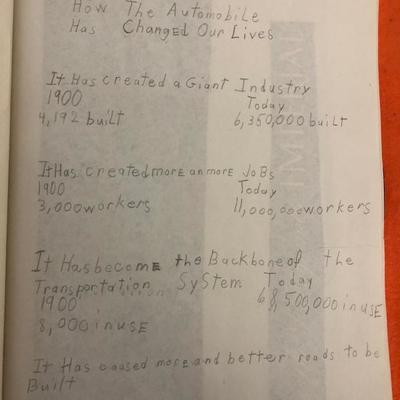 How The Automobile
Has Changed Our Lives
It Has created a Giant Industry
1900 Today
4,192 built 6,350,000 built
It Has created more an more JoBs
1900 Today
3,000 workers 11,000,000 workers
It Has become the Backbone of the
Transportation System Today
1900 68,500,000 in use
8,000 in use
It Has caused more and better roads to be
Built